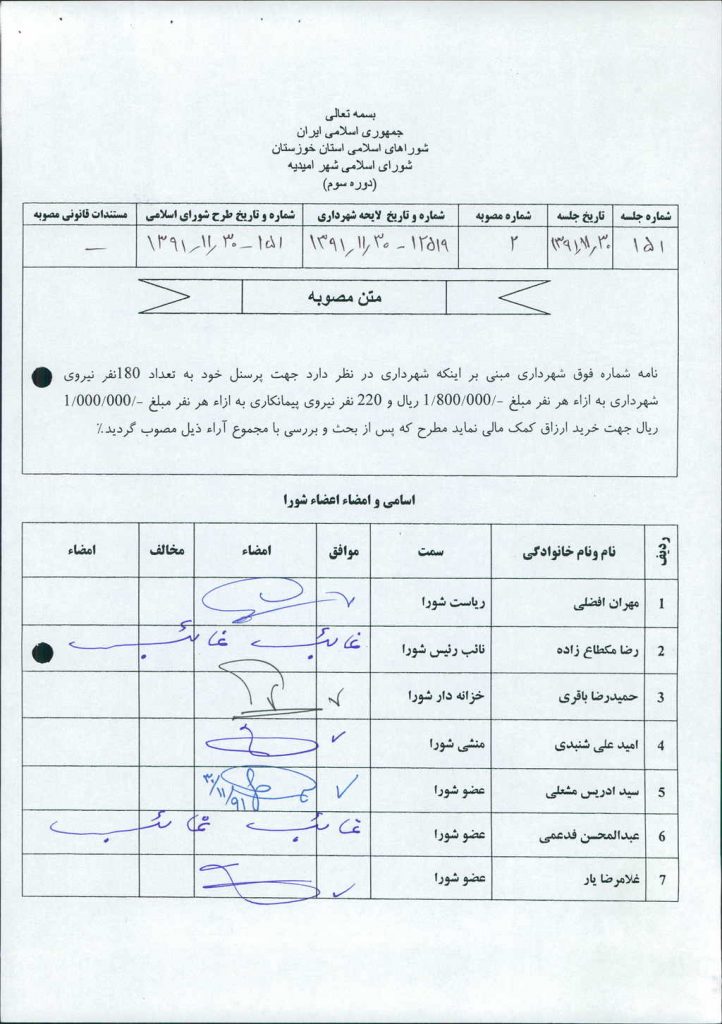 بسمه تعالی
جمهوری اسلامی ایران
شوراهای اسلامی استان خوزستان
شورای اسلامی شهر امیدیه
(دوره سوم)
شماره جلسه تاریخ جلسه شماره مصوبه شماره و تاریخ لایحه شهرداری شماره و تاریخ طرح شورای اسلامی مستندات قانونی مصوبه
۱۵۱ ۱۳۹۱٫۱۱٫۳۰ ۲ ۱۲۵۱۹ – ۱۳۹۱٫۱۱٫۳۰ ۱۵۱ – ۱۳۹۱٫۱۱٫۳۰ –
متن مصوبه
نامه شماره فوق شهرداری مبنی بر اینکه شهرداری در نظر دارد جهت پرسنل خود به تعداد 180نفر نیروی
شهرداری به ازاء هر نفر مبلغ -/1/800/000 ریال و 220 نفر نیروی پیمانکاری به ازاء هر نفر مبلغ -/1/000/000
ریال جهت خرید ارزاق کمک مالی نماید مطرح که پس از بحث و بررسی با مجموع آراء ذیل مصوب گردید.٪
اسامی و امضاء اعضاء شورا
ردیف نام ونام خانوادگی سمت موافق امضاء مخالف امضاء
1 مهران افضلی ریاست شورا ✓
2 رضا مکطاع زاده نائب رئیس شورا غائب غائب
3 حمیدرضا باقری خزانه دار شورا ✓
4 امید علی شنبدی منشی شورا ✓
5 سید ادریس مشعلی عضو شورا ✓ ۹۱/۱۱/۳۰
6 عبدالمحسن فدعمی عضو شورا غائب غائب
7 غلامرضا یار عضو شورا ✓